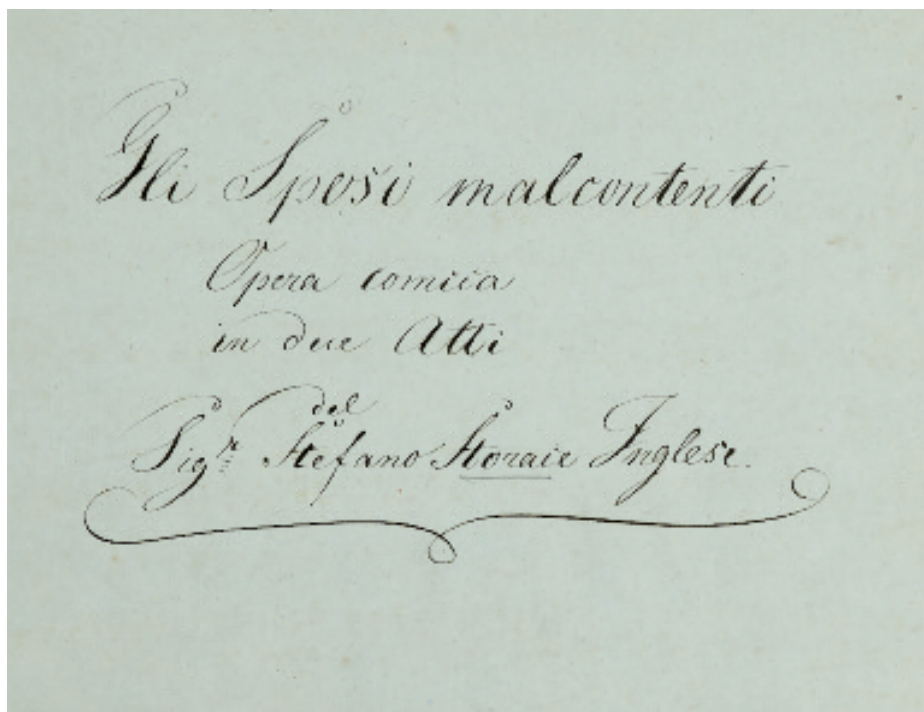 Gli Sposi malcontenti
Opera comica
in due Atti
del
Sigr Stefano Storace Inglese.